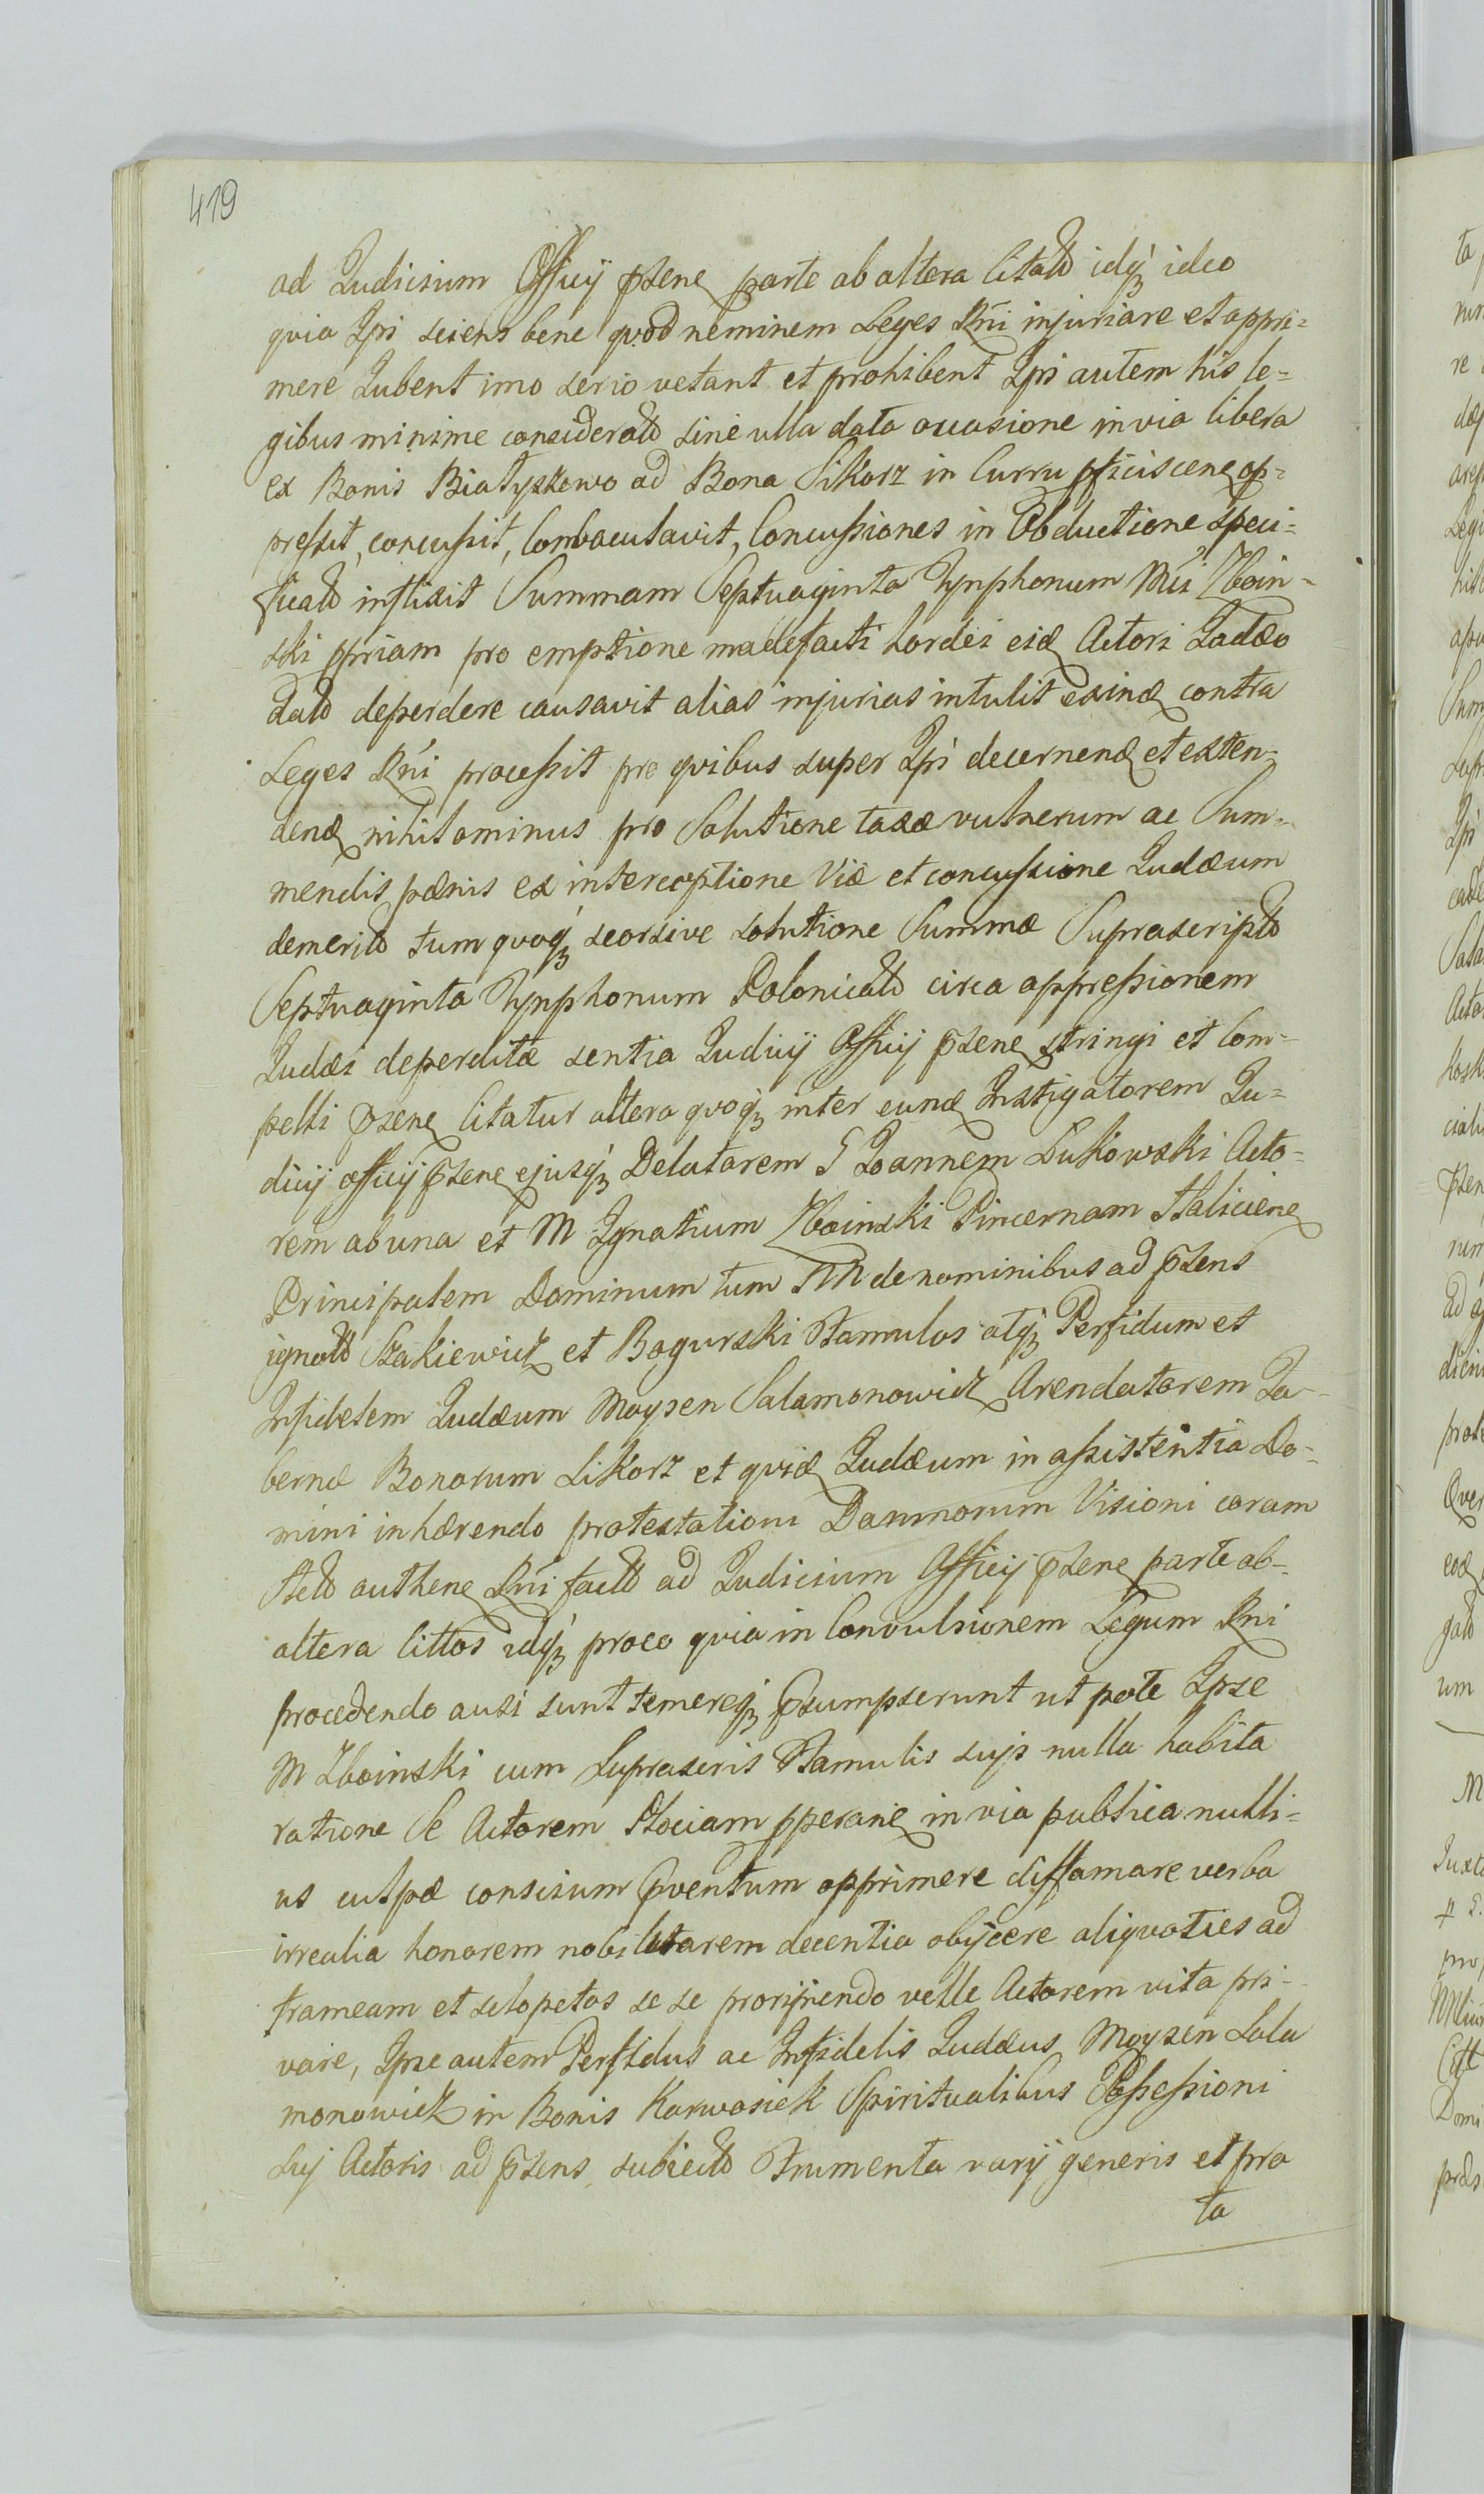 419
ad Judicium Officij pñsene parte ab altera Citato idq́ꝫ ideo
quia Ipsi sciens bene quod neminem Leges Rñi injuriare et oppri=
mere Jubent imo serio vetant et prohibent Ipsi autem his le=
gibus minime considerato sine ulla data occasione in via libera
ex Bonis Białyszewo ad Bona Sikorz in Curru pficiscene op=
pressit, concussit, Conbaculavit, Concussiones in Obductione speci=
ficato inflixit Summam Septuaginta Tynphonum Mci Zboin-
ski ppriam pro emptione madefacti hordei eid Actori Judæo
dato deperdere causavit alias injurias intulit exind contra
Leges Rñi processit pro quibus super Ipsi decernend et exten=
dend nihilominus pro Solutione taxæ vulnerum ac Sum-
mendis pænis ex interceptione Viæ et concussione Judæum
demerito tum quoq́ꝫ seorsive solutione Summæ Suprascripto
Septuaginta Tynphonum Polonicato circa oppressionem
Judæi deperditæ sentia Judicij Officij pñsene stringi et Com=
pelli pñsene Citatur altera quoq́ꝫ inter eund Instigatorem Ju=
dicij officij pñsene ejusq́ꝫ Delatorem G Joannem Lukowski Acto-
rem ab una et M Ignatium Zboinski Pincernam Haliciene
Principalem Dominum tum NN de nominibus ad pñsens
ignoto Szakiewicz et Bogurski Famulos atq́ꝫ Perfidum et
Infidelem Judæum Moysen Salamonowicz Arendatorem Ta-
bernæ Bonorum Sikorz et quid Judæum in assistentia Do-
mini inhærendo protestationi Damnorum Visioni coram
Acto authene Rñi facto ad Judicium Officij pñsene parte ab-
altera Cittos idq́ꝫ proeo quia in Convulsionem Legum Rñi
procedendo ausi sunt temereq́ꝫ psumpserunt ut pote Ipse
M Zboinski cum Suprascris Famulis suis nulla habita
ratione Se Actorem pperane in via publica nulli=
us culpæ conscium pventum opprimere diffamare verba
irrealia honorem nobilitarem decentia obijcere aliquoties ad
frameam et sclopetos se se proripiendo velle Actorem vita pri-
vare, Ipse autem Perfidus ac Infidelis Judæus Moysen Sala
monowicz in Bonis Karwosiek Spiritualibus Possessioni
Sui Actoris ad pñsens subiecto Frumenta varij generis et pra
ta